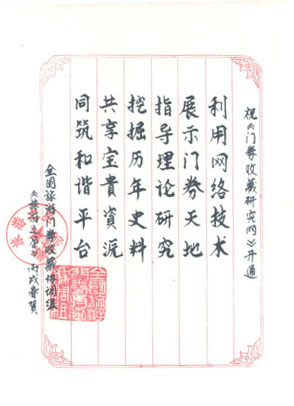 祝《门券收藏研究网》开通
利用网络技术
展示门券天地
指导理论研究
挖掘历年史料
共享宝贵資源
同筑和谐平台
全国旅游门券收藏协调组
丙戌春贺